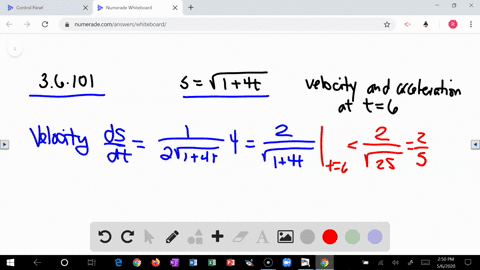 Control Panel
Numerade Whiteboard
numerade.com/answers/whiteboard/
3.6.101
s = √1+4t
velocity and acceleration
at t=6
Velocity ds/dt = 1/2√1+4t 4 = 2/√1+4t |t=6 < 2/√25 = 2/5
2:50 PM
5/6/2020